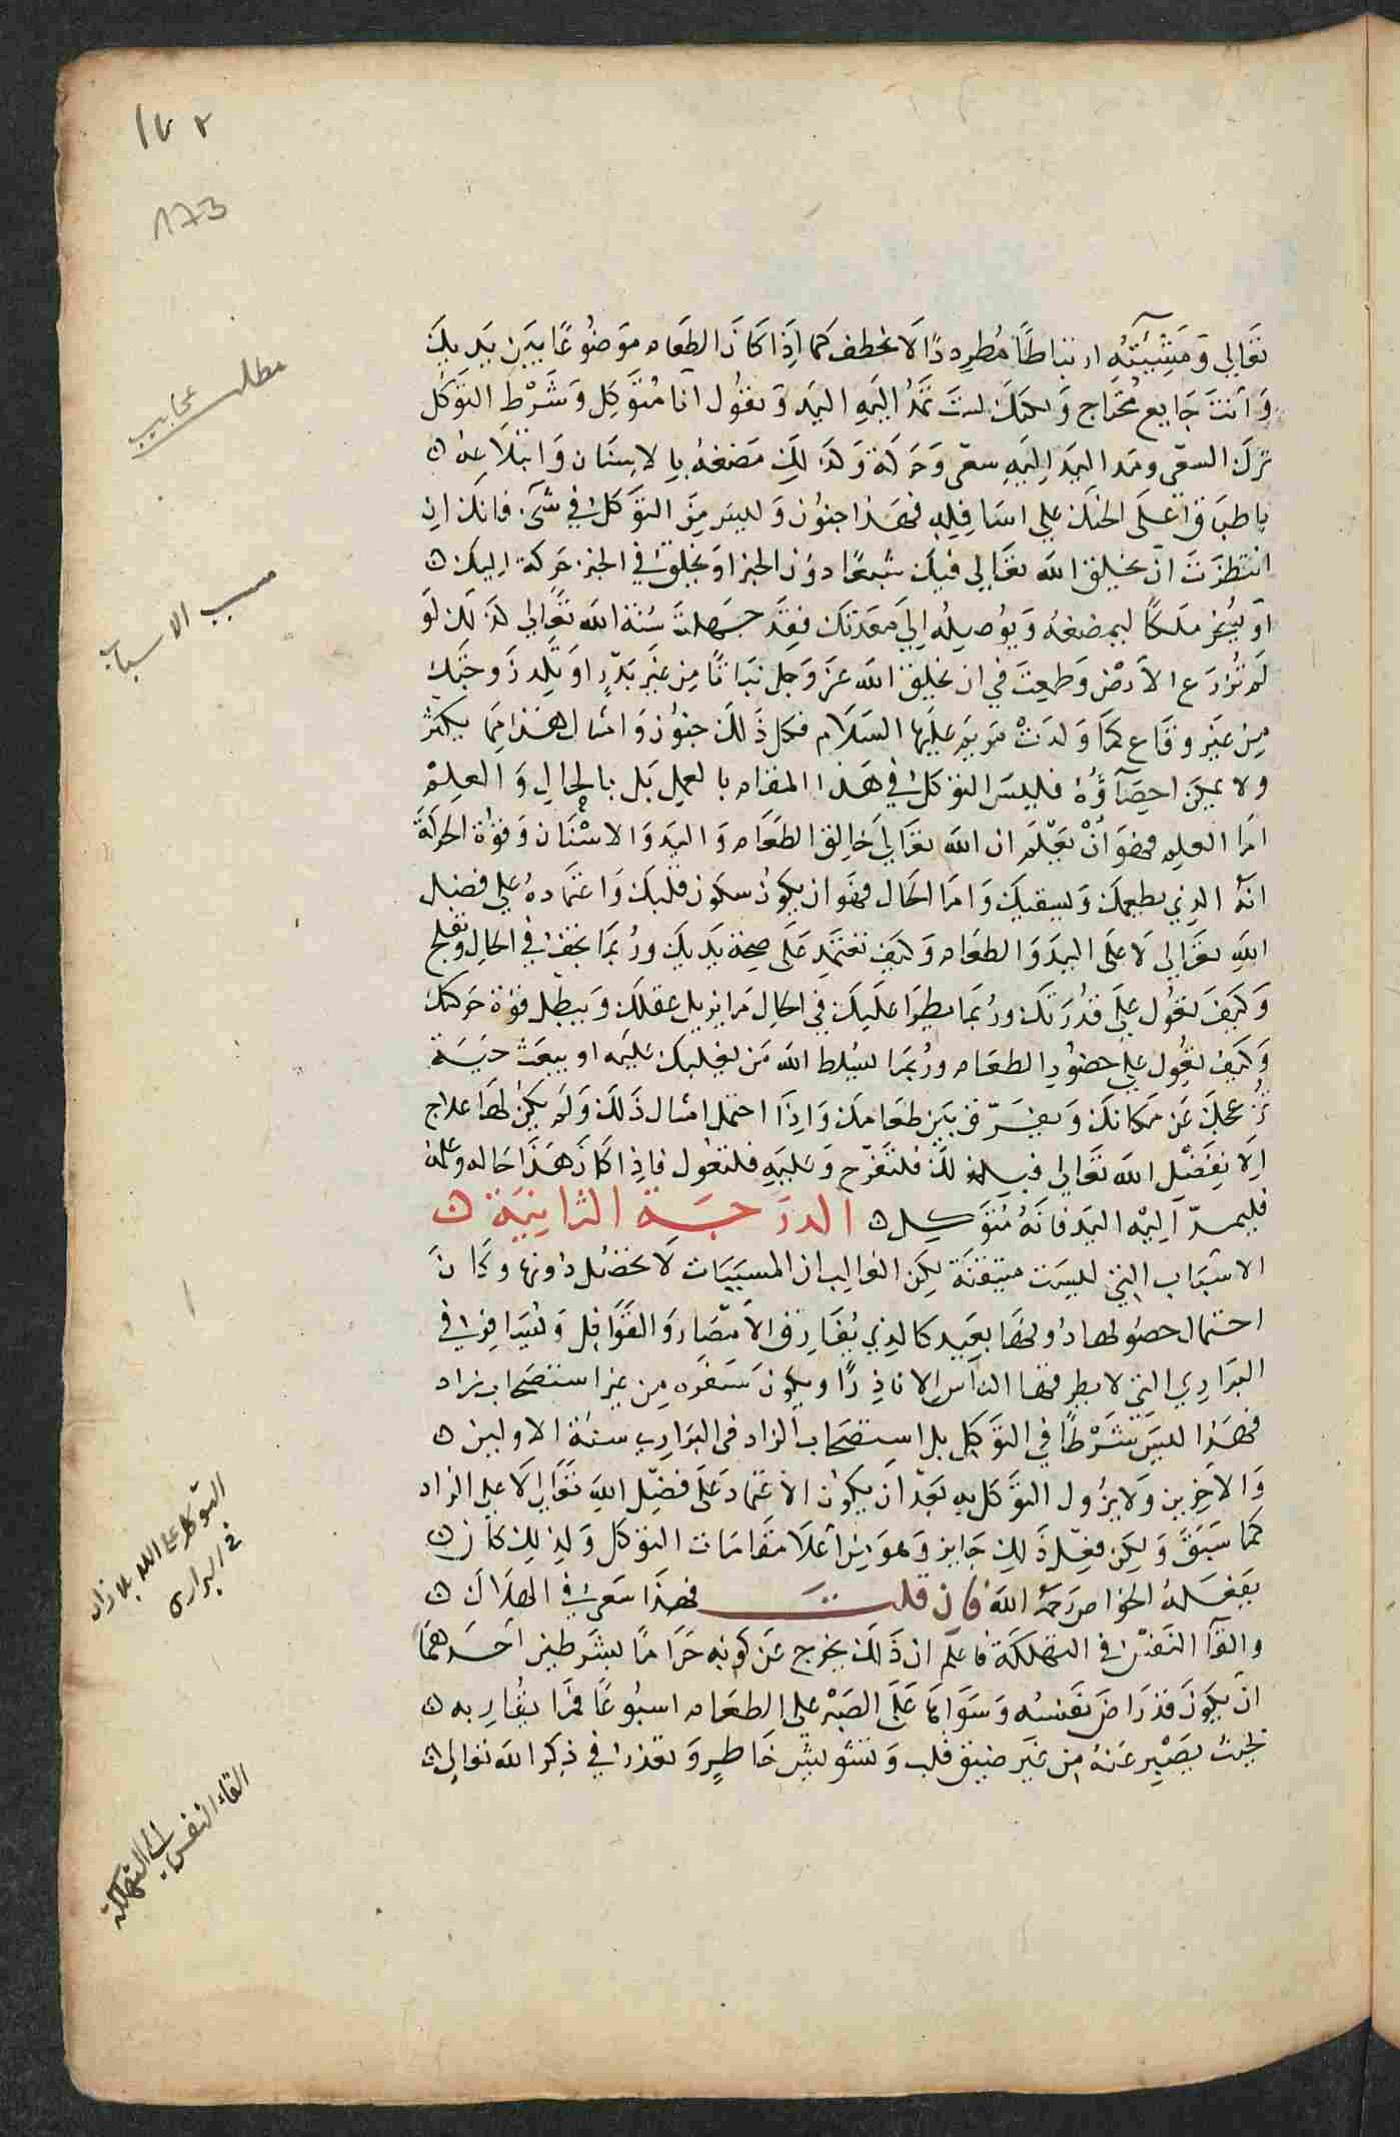 ١٧٢
173
تعالي ومشيئته ارتباطًا مُطردًا لا يخطف كما اذا كان الطعام موضوعًا بين يديك
وانت جايع محتاج ولكنك لست تمدّ اليه اليد وتقول انا متوكل وشرط التوكل
ترك السعي ومد اليد اليه سعي وحركة وكذلك مضغه بالاسنان وابتلاعه ن
باطباق اعلى الحنك علي اسافله فهذا جنون وليس من التوكل في شيء فانك ان
انتظرت ان يخلق الله تعالي فيك شبعًا دون الخبز او يخلق في الخبز حركة اليك ن
او يسخر ملكًا ليمضغه ويوصله الي معدتك فقد جهلت سنة الله تعالي كذلك لو
لم تزرع الارض وطمعت في ان يخلق الله عز وجل نباتًا من غير بذر او تلد زوجتك
من غير وقاع كما ولدت مريم عليها السلام فكل ذلك جنون وامثال هذا مما يكثر
ولا يمكن احصآؤه فليس التوكل في هذا المقام بالعمل بل بالحال والعلم
اما العلم فهو أن تعلم ان الله تعالي خالق الطعام واليد والاسنان وقوة الحركة
انه الذي يطعمك ويسقيك واما الحال فهو ان يكون سكون قلبك واعتماده علي فضل
الله تعالي لا علي اليد والطعام وكيف تعتمد على صحة يديك وربما تجف في الحال وتفلج
وكيف تقول علي قدرتك وربما يطرا عليك في الحال ما يزيل عقلك ويبطل قوة حركتك
وكيف تقول علي حضور الطعام وربما يسلط الله من يغلبك عليه او يبعث حية
تزعجك عن مكانك ويفرّق بين طعامك واذا احتمل امثال ذلك ولم يكن لها علاج
الا بفضل الله تعالي فبذلك فلتفرح وعليه فلتعول فاذا كان هذا حاله وعلمه
فليمدّ اليه اليد فانه متوكل ن الدرجة الثانية ن
الاسباب التي ليست متيقنة لكن الغالب ان المسببات لا تحصل دونها وكان
احتمال حصولها دونها بعيد كالذي يفارق الامصار والقوافل ويسافر في
البراري التي لا يطرقها الناس الا نادرًا ويكون سفره من غير استصحاب زاد
فهذا ليس شرطًا في التوكل بل استصحاب الزاد في البراري سنة الاولين ن
والاخرين ولا يزول التوكل به بعد ان يكون الاعتماد على فضل الله تعالي لا علي الزاد
كما سبق ولكن فعل ذلك جايز وهو من اعلا مقامات التوكل ولذلك كان ن
يفعله الخواص رحمه الله فان قلت فهذا سعي في الهلاك ن
والقآ النفس في التهلكة فاعلم ان ذلك يخرج عن كونه حرامًا بشرطين احدهما
ان يكون قد راض نفسه وسواها على الصبر على الطعام اسبوعًا فما يقاربه ن
بحيث يصبر عنه من غير ضيق قلب وتشويش خاطر وتعذر في ذكر الله تعالي ن
مطلب عجايب
مسبب الاسباب
التوكل على الله بلا زاد
في البراري
القاء النفس الي التهلكة